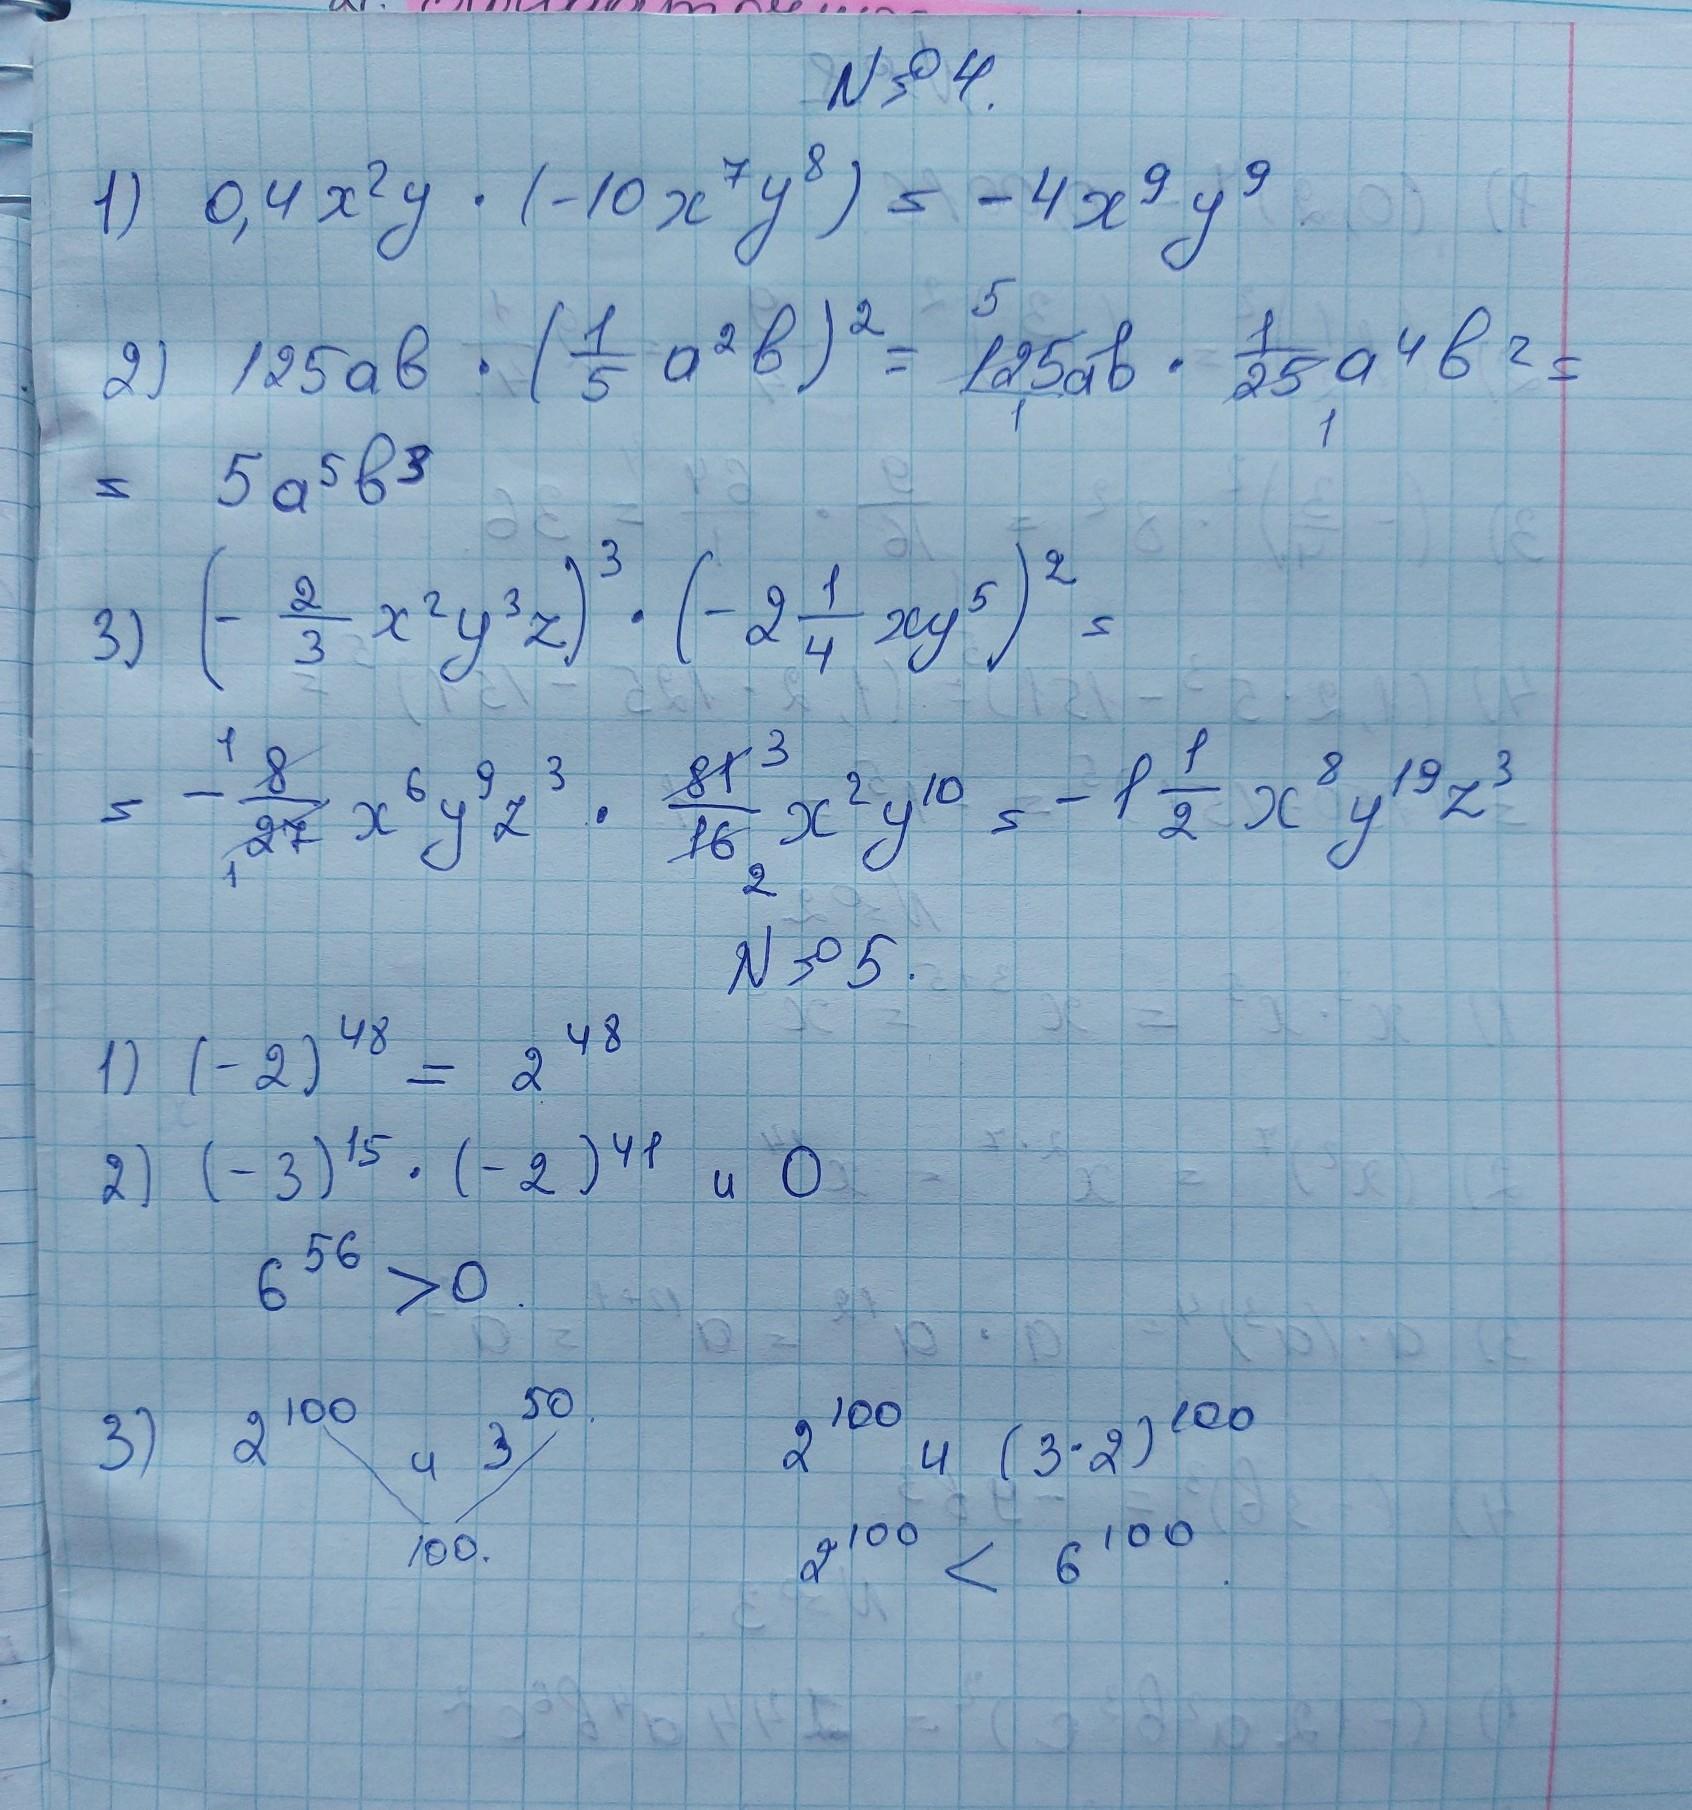 № 4.
1) 0,4x²y · (-10x⁷y⁸) = -4x⁹y⁹
2) 125ab · (1/5 a²b)² = 125ab · 1/25 a⁴b² =
= 5a⁵b³
3) (- 2/3 x²y³z)³ · (-2 1/4 xy⁵)² =
= - 8/27 x⁶y⁹z³ · 81/16 x²y¹⁰ = -1 1/2 x⁸y¹⁹z³
№ 5.
1) (-2)⁴⁸ = 2⁴⁸
2) (-3)¹⁵ · (-2)⁴¹ и 0
6⁵⁶ > 0.
3) 2¹⁰⁰ и 3⁵⁰. 2¹⁰⁰ и (3·2)¹⁰⁰
100. 2¹⁰⁰ < 6¹⁰⁰.